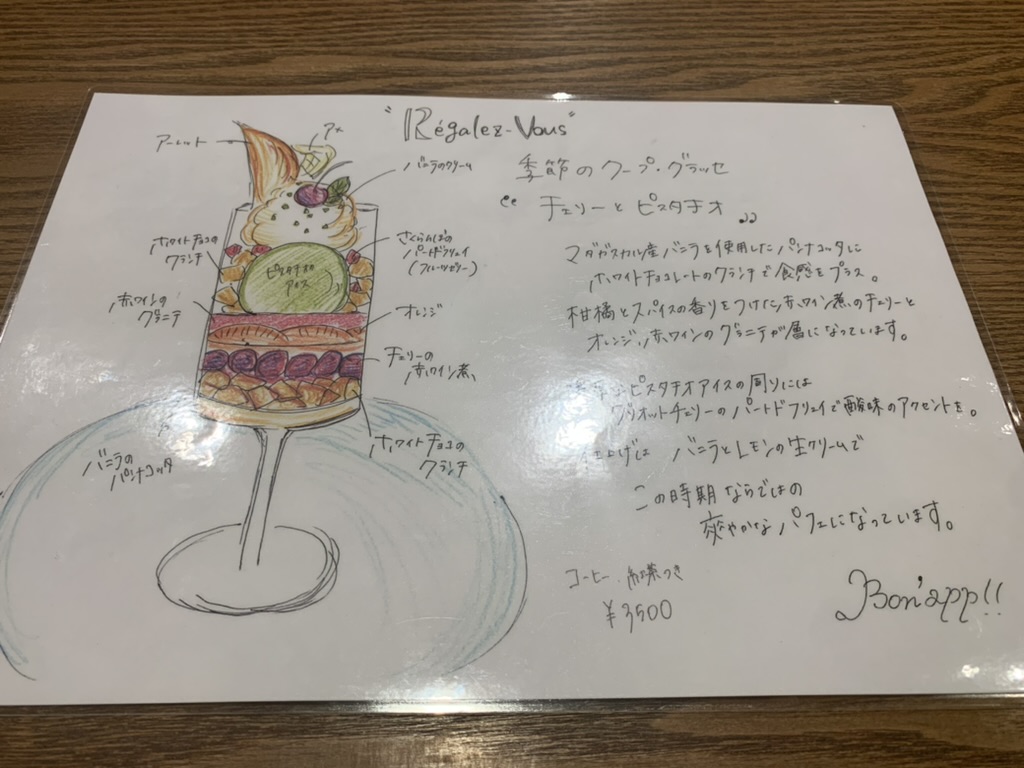 "Régalez-Vous"
季節のクープ・グラッセ
“ チェリーとピスタチオ „
マダガスカル産バニラを使用したパンナコッタに
ホワイトチョコレートのクランチで食感をプラス。
柑橘とスパイスの香りをつけた赤ワイン煮のチェリーと
オレンジ、赤ワインのグラニテが層になっています。
ピスタチオアイスの周りには
グリオットチェリーのパートドフリュイで酸味のアクセントを。
仕上げは バニラとレモンの生クリームで
この時期ならではの
爽やかなパフェになっています。
コーヒー・紅茶つき
¥3500
Bon'app!!
アーレット
アメ
バニラのクリーム
ホワイトチョコの
クランチ
さくらんぼの
パートドフリュイ
(フルーツゼリー)
ピスタチオ
アイス
赤ワインの
グラニテ
オレンジ
チェリーの
赤ワイン煮
バニラの
パンナコッタ
ホワイトチョコの
クランチ